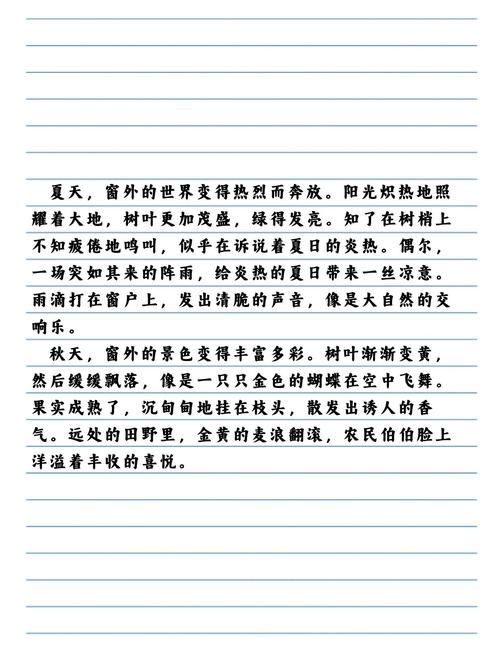 夏天，窗外的世界变得热烈而奔放。阳光炽热地照
耀着大地，树叶更加茂盛，绿得发亮。知了在树梢上
不知疲倦地鸣叫，似乎在诉说着夏日的炎热。偶尔，
一场突如其来的阵雨，给炎热的夏日带来一丝凉意。
雨滴打在窗户上，发出清脆的声音，像是大自然的交
响乐。
秋天，窗外的景色变得丰富多彩。树叶渐渐变黄，
然后缓缓飘落，像是一只只金色的蝴蝶在空中飞舞。
果实成熟了，沉甸甸地挂在枝头，散发出诱人的香
气。远处的田野里，金黄的麦浪翻滚，农民伯伯脸上
洋溢着丰收的喜悦。